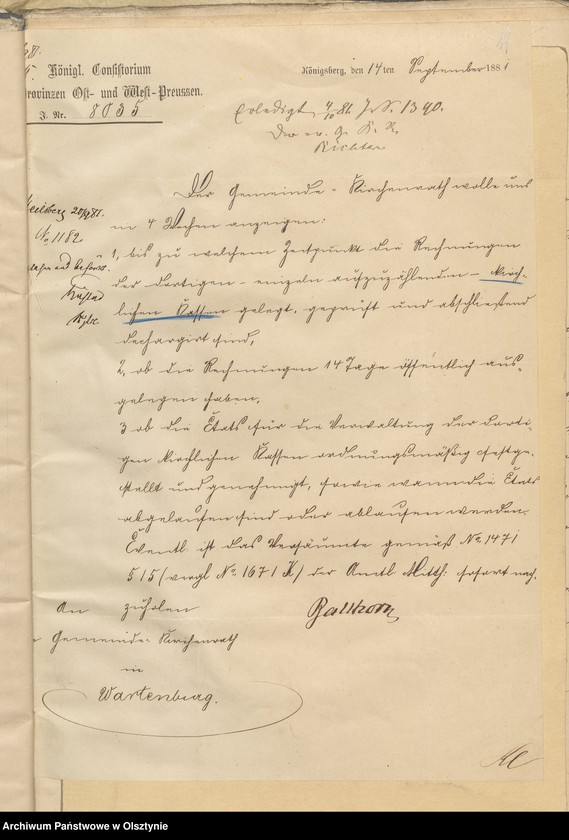 Königl. Consistorium
Provinzen Ost- und West-Preussen.
J. Nr. 8035
Königsberg, den 14ten September 1881
Erledigt 4/10 81. J. N. 1390.
Der ev. G. K. R.
Richter
Heilsberg 20/9 81.
No. 1182
Der Gemeinde-Kirchenrath wolle uns
in 4 Wochen anzeigen:
1, bis zu welchem Zeitpunkt die Rechnungen
der dortigen - einzeln aufzuzählenden - kirch-
lichen Kassen gelegt, geprüft und abschließend
dechargirt sind,
2, ob die Rechnungen 14 Tage öffentlich aus-
gelegen haben,
3 ob die Etats für die Verwaltung der dorti-
gen kirchlichen Kassen ordnungsmäßig festge-
stellt und genehmigt, sowie wann die Etats
abgelaufen sind oder ablaufen werden.
Eventl ist das Versäumte gemäß No. 1471
515 (vergl No. 1671 K) der Amtl. Mitth: sofort nach-
zuholen
An
Gemeinde-Kirchenrath
in
Wartenburg.
Archiwum Państwowe w Olsztynie